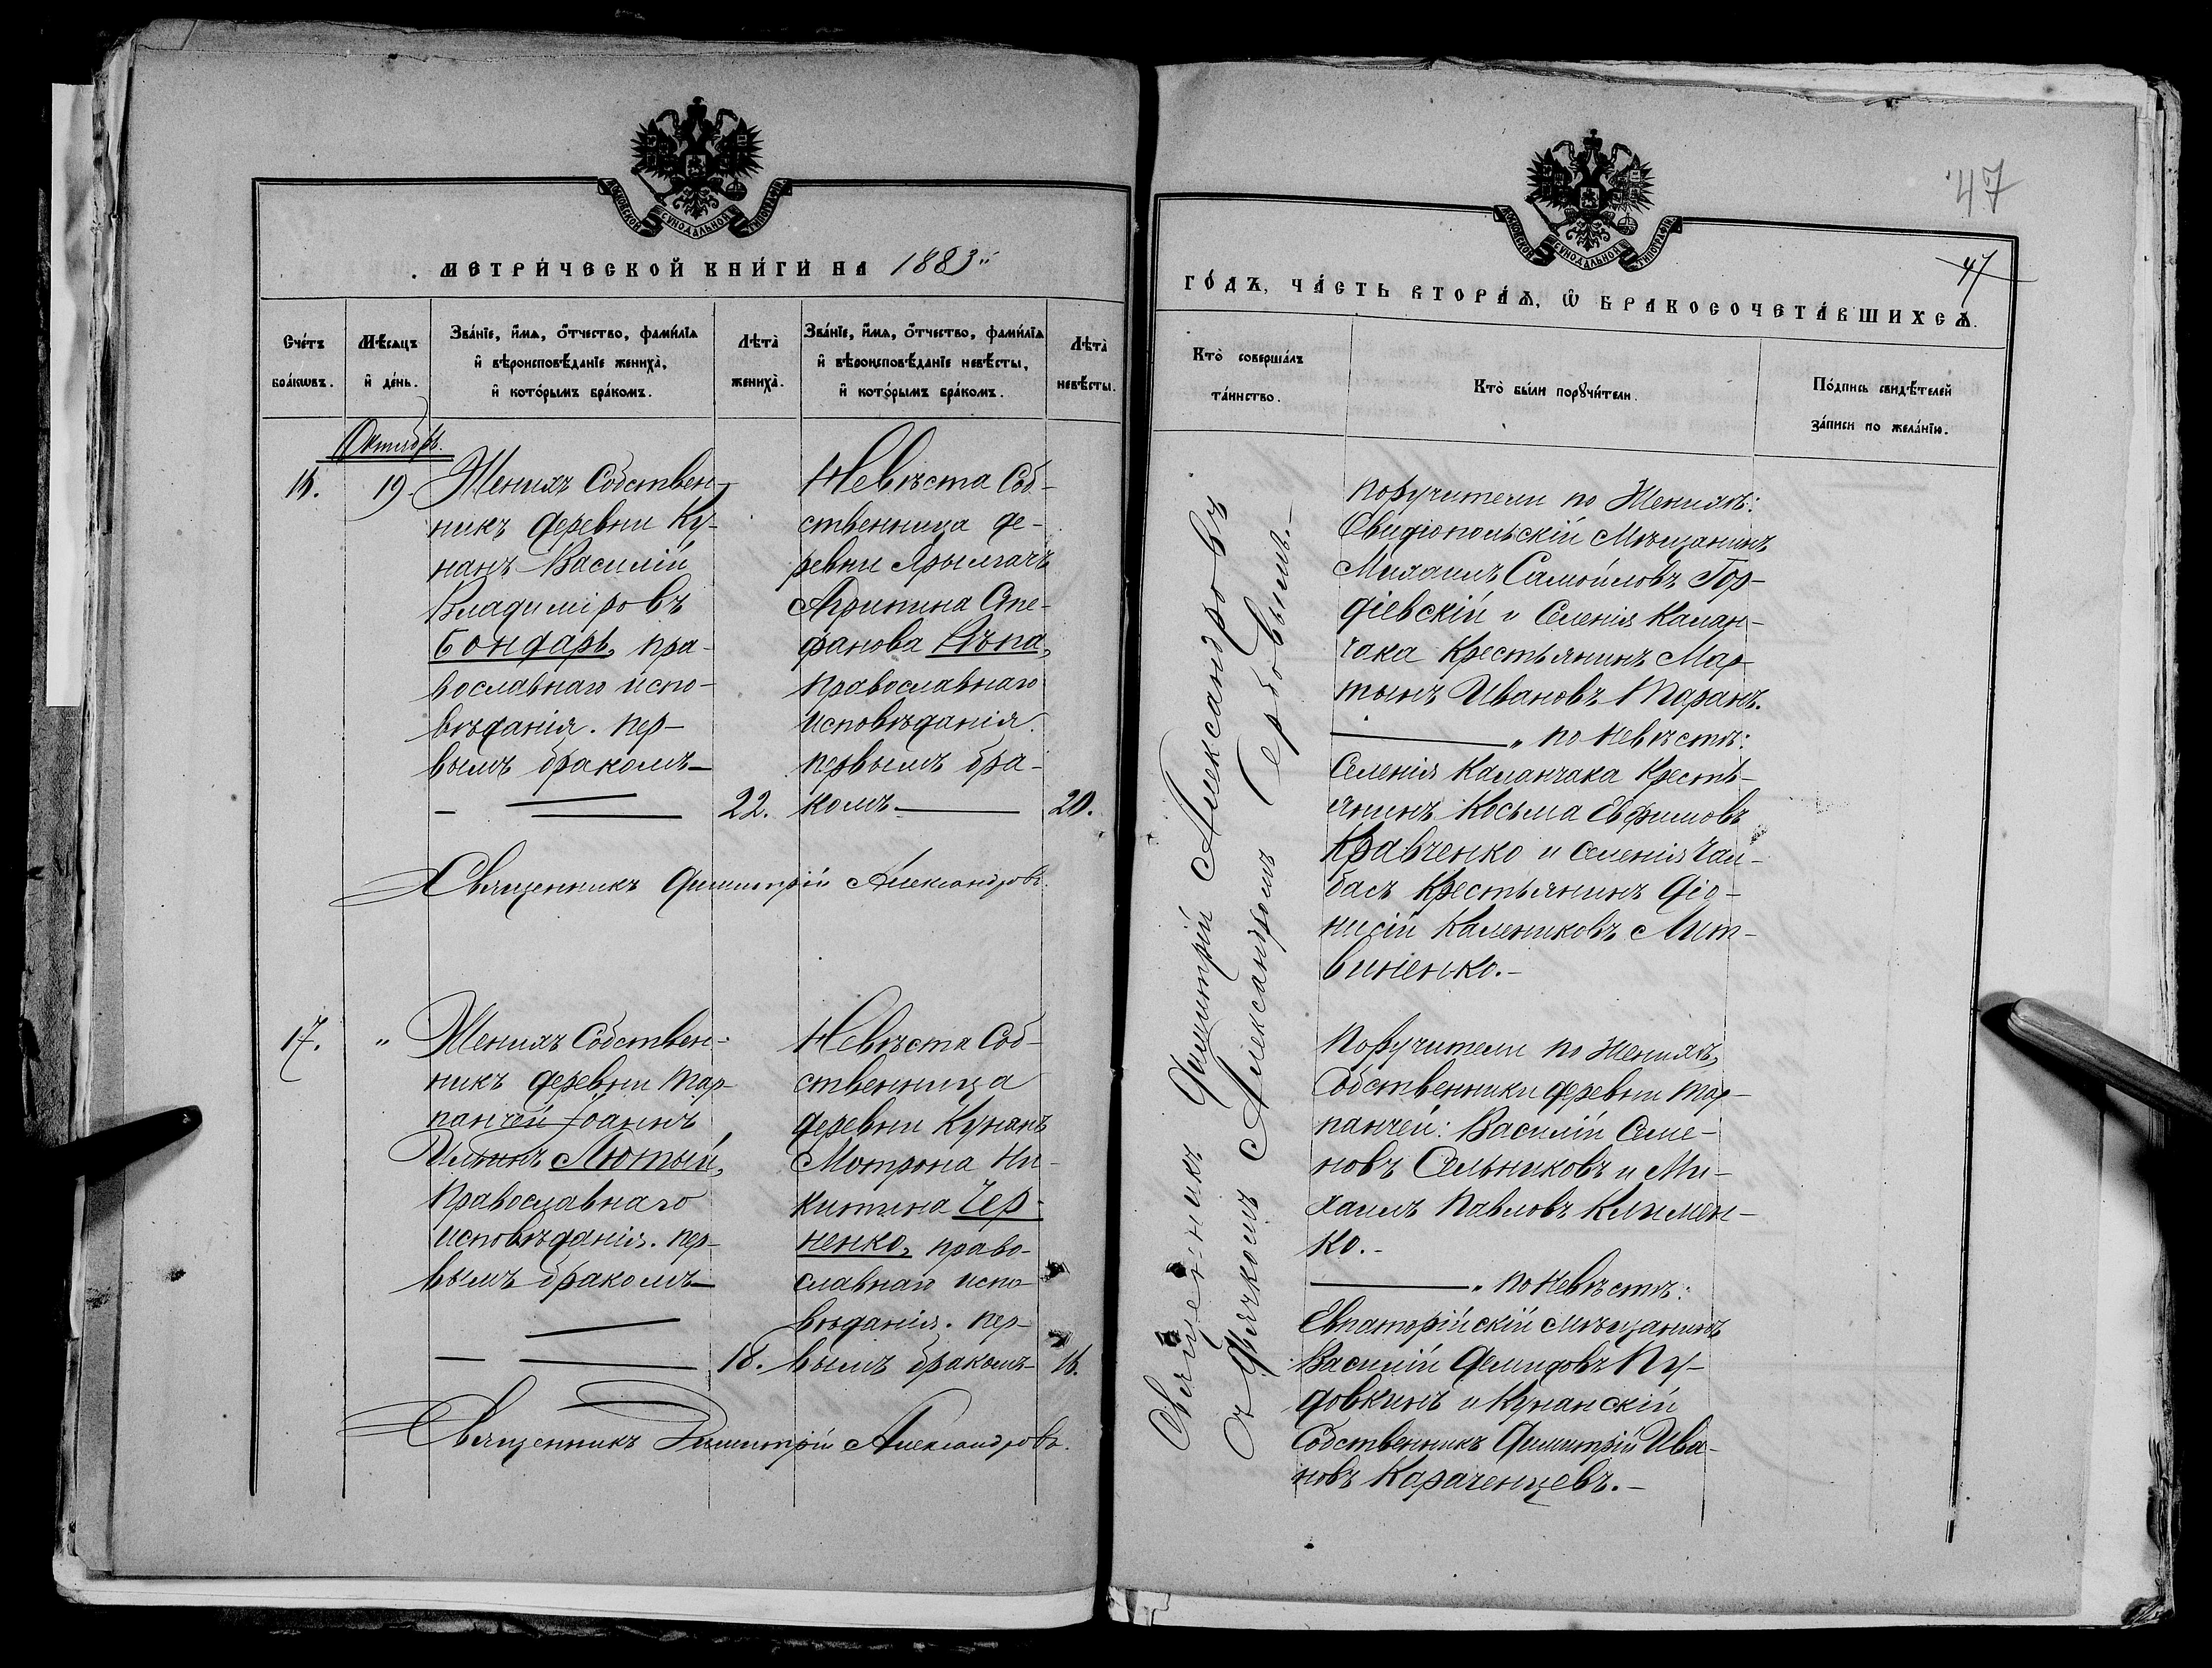 МОСКОВСКОЙ СУНОДАЛЬНОЙ ТИПОГРАФІИ
МЕТРИ́ЧЕСКОЙ КНИ́ГИ НА 1883
Сче́тъ бра́кѡвъ.
Мѣ́сяцъ и҆ де́нь.
Зва́нїе, и҆́мѧ, ѻ҆́тчество, фами́лїѧ
и҆ вѣроисповѣ́данїе жениха̀,
и҆ кото́рымъ бра́комъ.
Лѣта̀ жениха̀.
Зва́нїе, и҆́мѧ, ѻ҆́тчество, фами́лїѧ
и҆ вѣроисповѣ́данїе невѣ́сты,
и҆ кото́рымъ бра́комъ.
Лѣта̀ невѣ́сты.
Октябрь.
16. 19.
Женихъ Собствен-
никъ деревни Ку-
нанъ Василій
Владиміровъ
Бондарь, пра-
вославнаго испо-
вѣданія. пер-
вымъ бракомъ
22.
Невѣста Соб-
ственница де-
ревни Ярылгачъ
Агрипина Сте-
фанова Рѣпа,
православнаго
исповѣданія.
первымъ бра-
комъ
20.
Священникъ Димитрій Александровъ.
17. "
Женихъ Собствен-
никъ деревни Тар-
панчей Іоаннъ
Ильинъ Лютый,
Православнаго
исповѣданія. пер-
вымъ бракомъ
18.
Невѣста Соб-
ственница
деревни Кунанъ
Мотрона Ни-
китина Чер-
ненко, право-
славнаго испо-
вѣданія. пер-
вымъ бракомъ
16.
Священникъ Димитрій Александровъ.
47
47
МОСКОВСКОЙ СУНОДАЛЬНОЙ ТИПОГРАФІИ
ГО́ДЪ, ЧА́СТЬ ВТОРА́Ѧ, Ѽ БРАКОСОЧЕТА́ВШИХСѦ.
Кто̀ соверша́лъ
та́инство.
Кто̀ бы́ли порꙋчи́тели.
По́дпись свидѣ́телей
за́писи по жела́нїю.
Священникъ Димитрій Александровъ
съ Дьячкомъ Александромъ Гербовымъ.-
поручители по Женихѣ:
Овидіопольскій Мѣщанинъ
Михаилъ Самойловъ Гор-
діевскій и Селенія Калан-
чака Крестьянинъ Мар-
тынъ Ивановъ Таранъ.
" по Невѣстѣ:
Селенія Каланчака Кресть-
янинъ Косьма Ефимовъ
Кравченко и Селенія Чал-
басъ Крестьянинъ Діо-
нисій Калениковъ Лит-
виненко.-
Поручители по Женихѣ,
Собственники деревни Тар-
панчей: Василій Семе-
новъ Сальниковъ и Ми-
хаилъ Павловъ Климен-
ко.-
" по Невѣстѣ:
Евпаторійскій мѣщанинъ
Василій Демидовъ Пу-
довкинъ и Кунанскій
Собственникъ Димитрій Ива-
новъ Караченцевъ.-